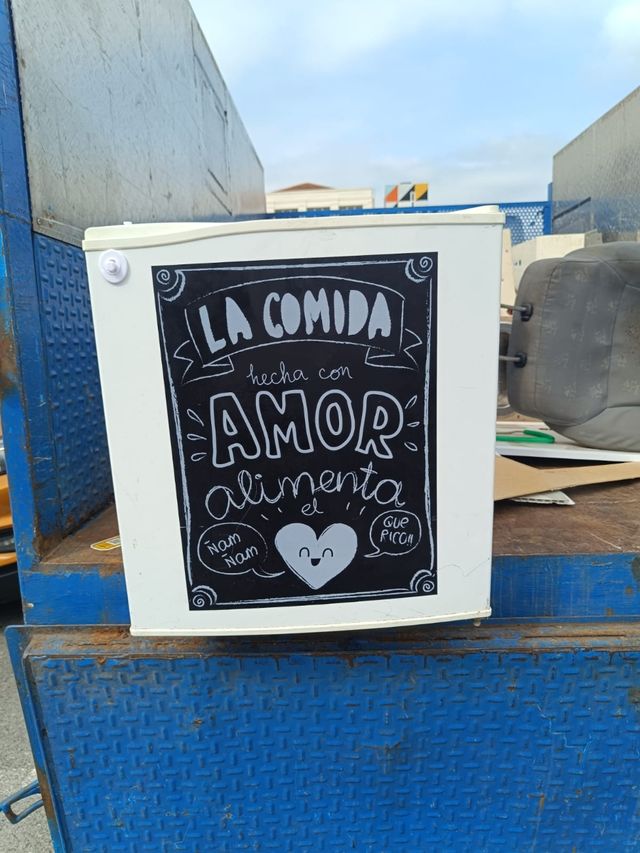 LA COMIDA
hecha con
AMOR
alimenta
el
ÑAM
ÑAM
QUE
RICO!!